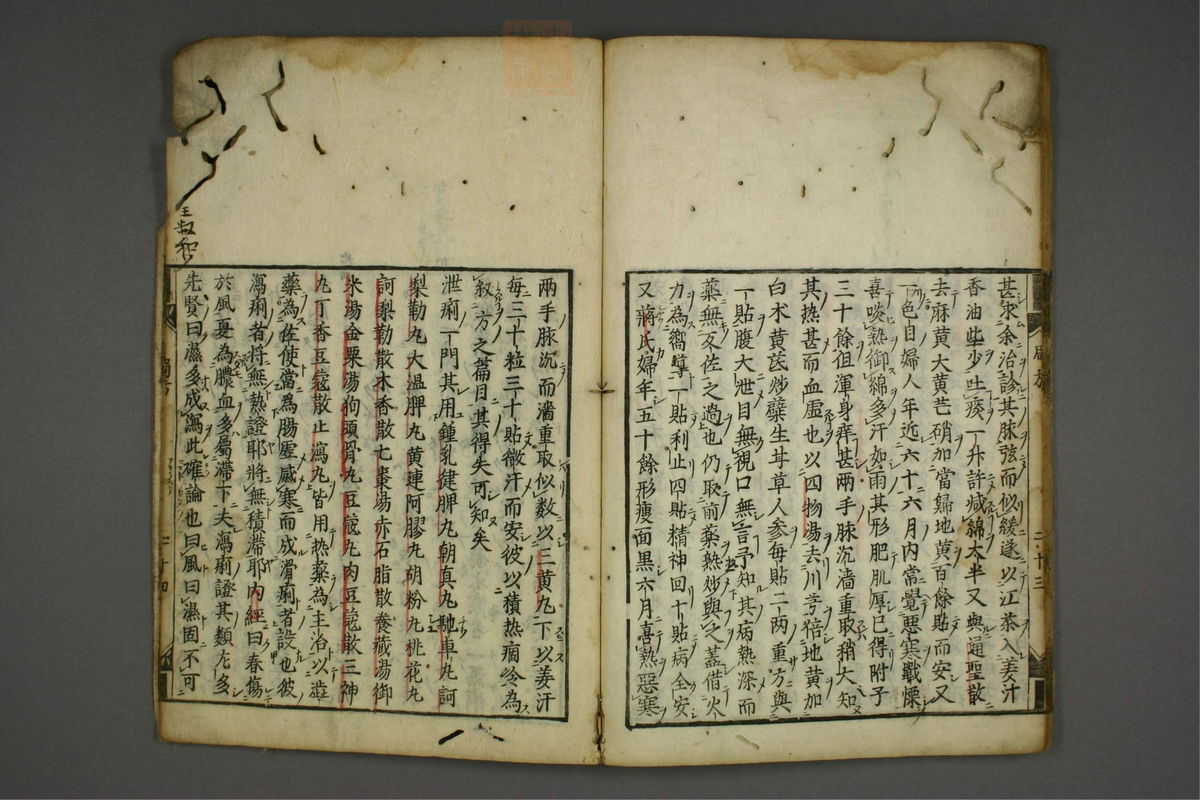 甚求余治診其脉弦而似緩遂以江茶入姜汁
香油些少吐痰一升許減綿太半又與通聖散
去麻黄大黄芒硝加當歸地黄百餘貼而安又
一色目婦人年近六十六月内常覺悪寒戰慄
喜啖熱御綿多汗如雨其形肥肌厚已得附子
三十餘但渾身痒甚兩手脉沉濇重取稍大知
其热甚而血虚也以四物湯去川芎倍地黄加
白术黄芪炒蘗生甘草人參毎貼二兩重方與
一貼腹大泄目無視口無言予知其病熱深而
藥無反佐之過也仍取前藥熱炒與之蓋借火
力為嚮導一貼利止四貼精神回十貼病全安
又蔣氏婦年五十餘形瘦面黒六月喜熱惡寒
兩手脉沉而濇重取似数以三黄丸下以姜汁
毎三十粒三十貼微汗而安彼以積热痼冷為
叙方之篇目其得失可知矣
泄痢一門其用鍾乳健脾丸朝真丸駞車丸訶
梨勒丸大温脾丸黄連阿膠丸胡粉丸桃花丸
訶梨勒散木香散七棗湯赤石脂散養藏湯御
米湯金粟湯狗頭骨丸豆蔻丸肉豆蔻散三神
丸丁香豆蔻散止瀉丸皆用热藥為主治以澁
藥為佐使當為腸虚感寒而成滑痢者設也彼
瀉痢者将無熱證耶将無積滯耶内經曰春傷
於風夏為膿血多屬滯下夫瀉痢證其類尤多
先賢曰濕多成瀉此確論也曰風曰濕固不可
二十三
二十四
王叔和